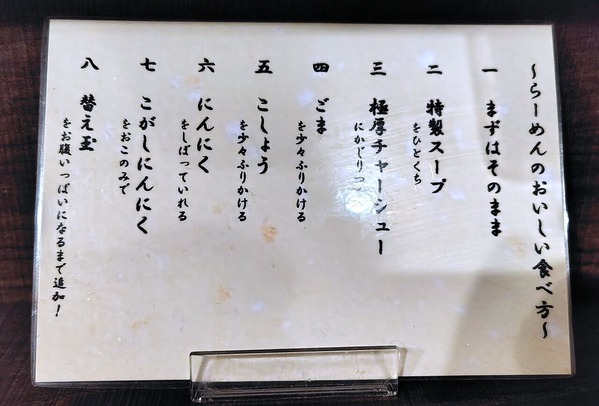 ～らーめんのおいしい食べ方～
一 まずはそのまま
二 特製スープ
をひとくち
三 極厚チャーシュー
にかじりつ
四 ごま
を少々ふりかける
五 こしょう
を少々ふりかける
六 にんにく
をしぼっていれる
七 こがしにんにく
をおこのみで
八 替え玉
をお腹いっぱいになるまで追加！